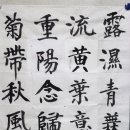 露濕青葉
流黃葉意
重陽念歸
菊帶秋風